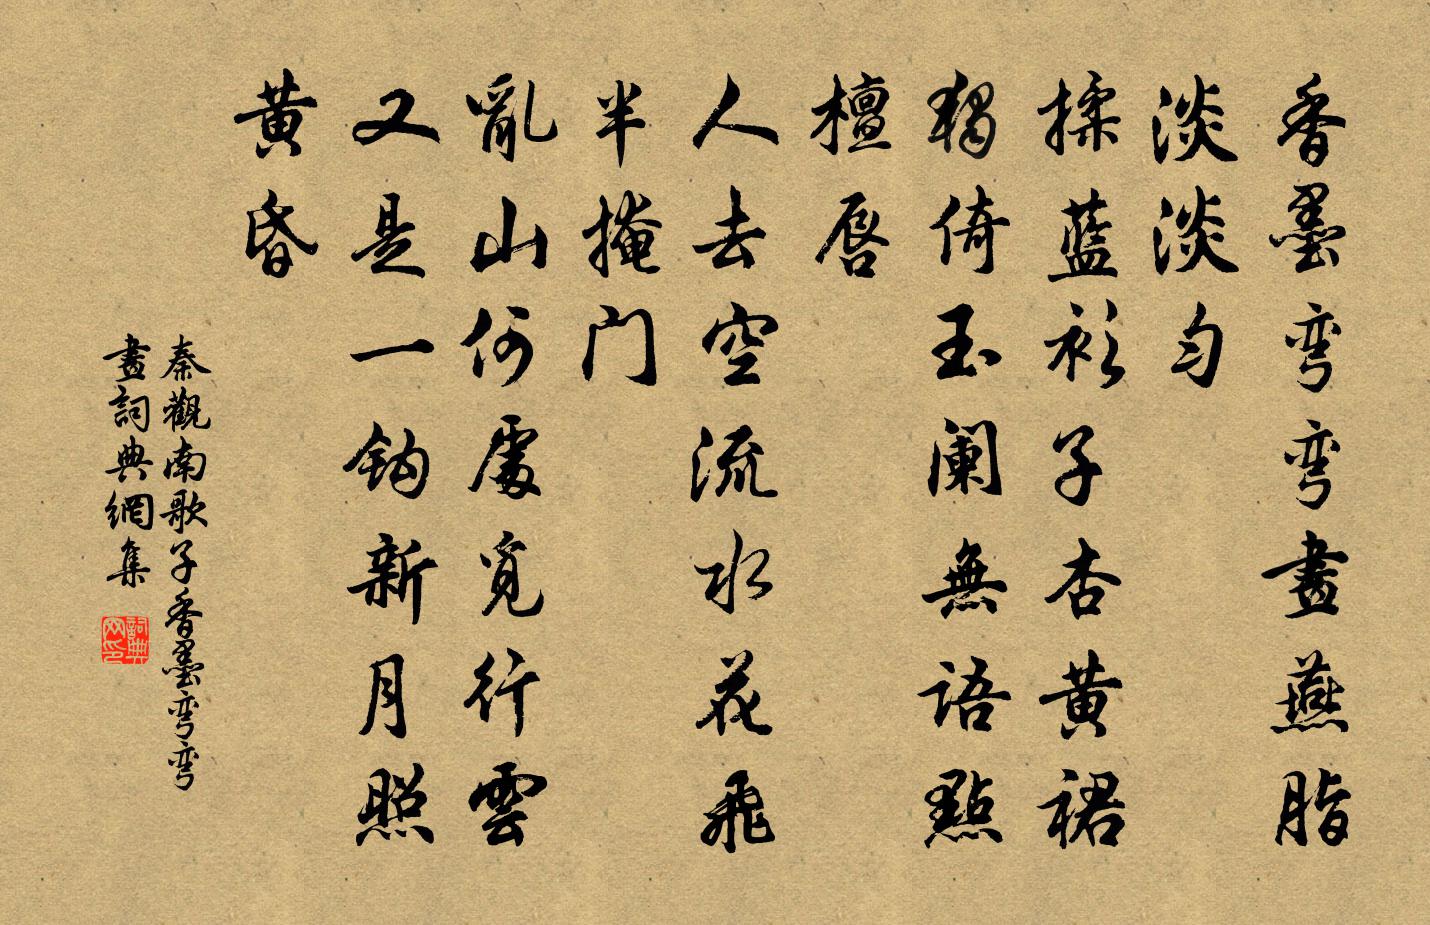 香墨弯弯畫燕脂
淡淡勻
揉藍衫子杏黃裙
獨倚玉阑無語點
檀唇
人去空流水花飛
半掩门
亂山何處覓行雲
又是一鈎新月照
黃昏
秦觀南歌子香墨弯弯
畫詞典網集
詞典
网印